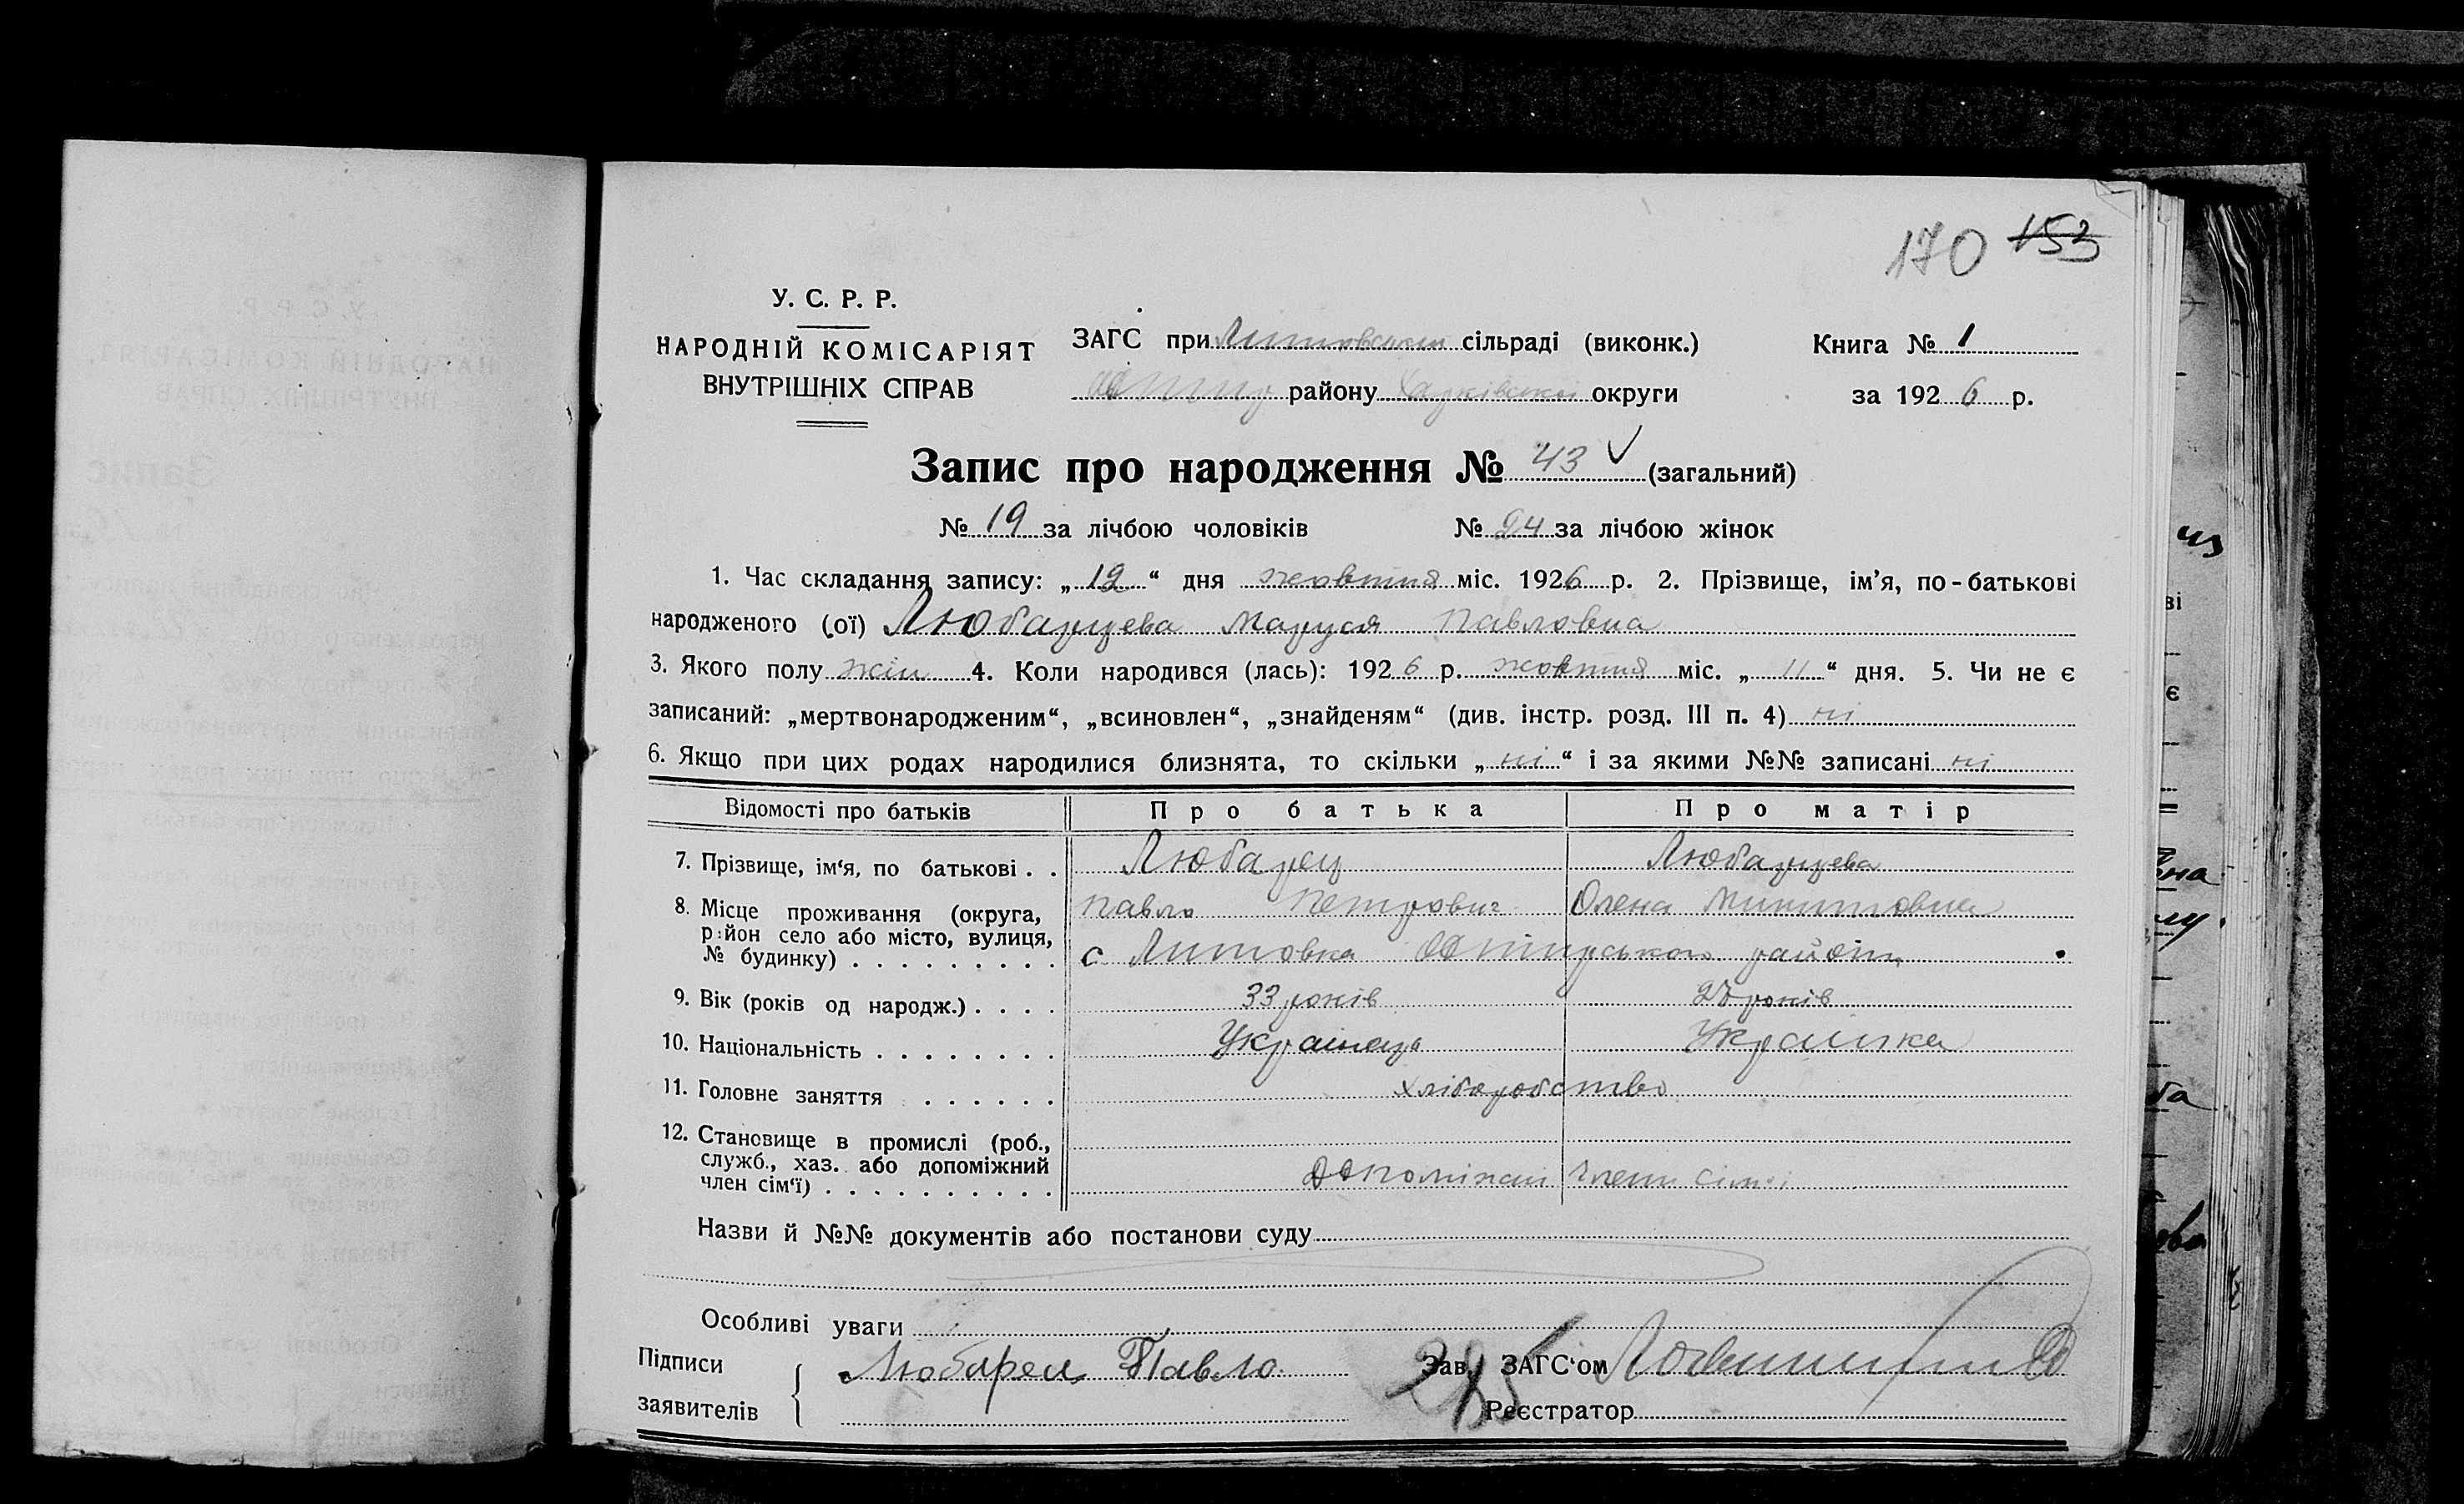 170 153
У. С. Р. Р.
НАРОДНІЙ КОМІСАРІЯТ
ВНУТРІШНІХ СПРАВ
ЗАГС при Литовський сільраді (виконк.)
району Харківської округи
Книга № 1
за 1926 р.
Запис про народження № 43 (загальний)
№ 19 за лічбою чоловіків № 24 за лічбою жінок
1. Час складання запису: „12“ дня жовтня міс. 1926 р. 2. Прізвище, ім’я, по-батькові
народженого (ої) Любарцева Маруся Павловна
3. Якого полу жін 4. Коли народився (лась): 1926 р. жовтня міс. „11“ дня. 5. Чи не є
записаний: „мертвонародженим“, „всиновлен“, „знайденям“ (див. інстр. розд. III п. 4) ні
6. Якщо при цих родах народилися близнята, то скільки „ні“ і за якими №№ записані ні
Відомості про батьків Про батька Про матір
7. Прізвище, ім‘я, по батькові . . Любарец Любарцева
Павло Петрович Олена Микитовна
8. Місце проживання (округа,
район село або місто, вулиця,
№ будинку) . . . . . . . . . с Литовка район
9. Вік (років од народж.) . . . . 33 років років
10. Національність . . . . . . . . Українець Українка
11. Головне заняття . . . . . . хліборобство
12. Становище в промислі (роб.,
служб., хаз. або допоміжний
член сім‘ї) . . . . . . . . . . член сімї
Назви й №№ документів або постанови суду
Особливі уваги
Підписи
заявителів
Любарец Павло
Зав. ЗАГС‘ом
Реєстратор